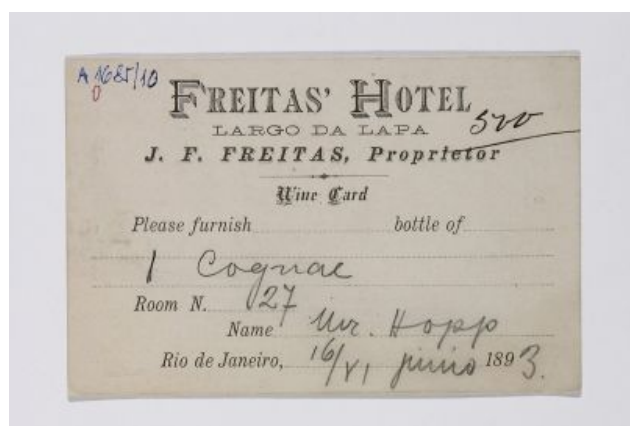 A 1685/10
0
FREITAS' HOTEL
LARGO DA LAPA
500
J. F. FREITAS, Proprietor
Wine Card
Please furnish bottle of
1 Cognac
Room N. 27
Name Mr. Hopp
Rio de Janeiro, 16/VI junio 1893.